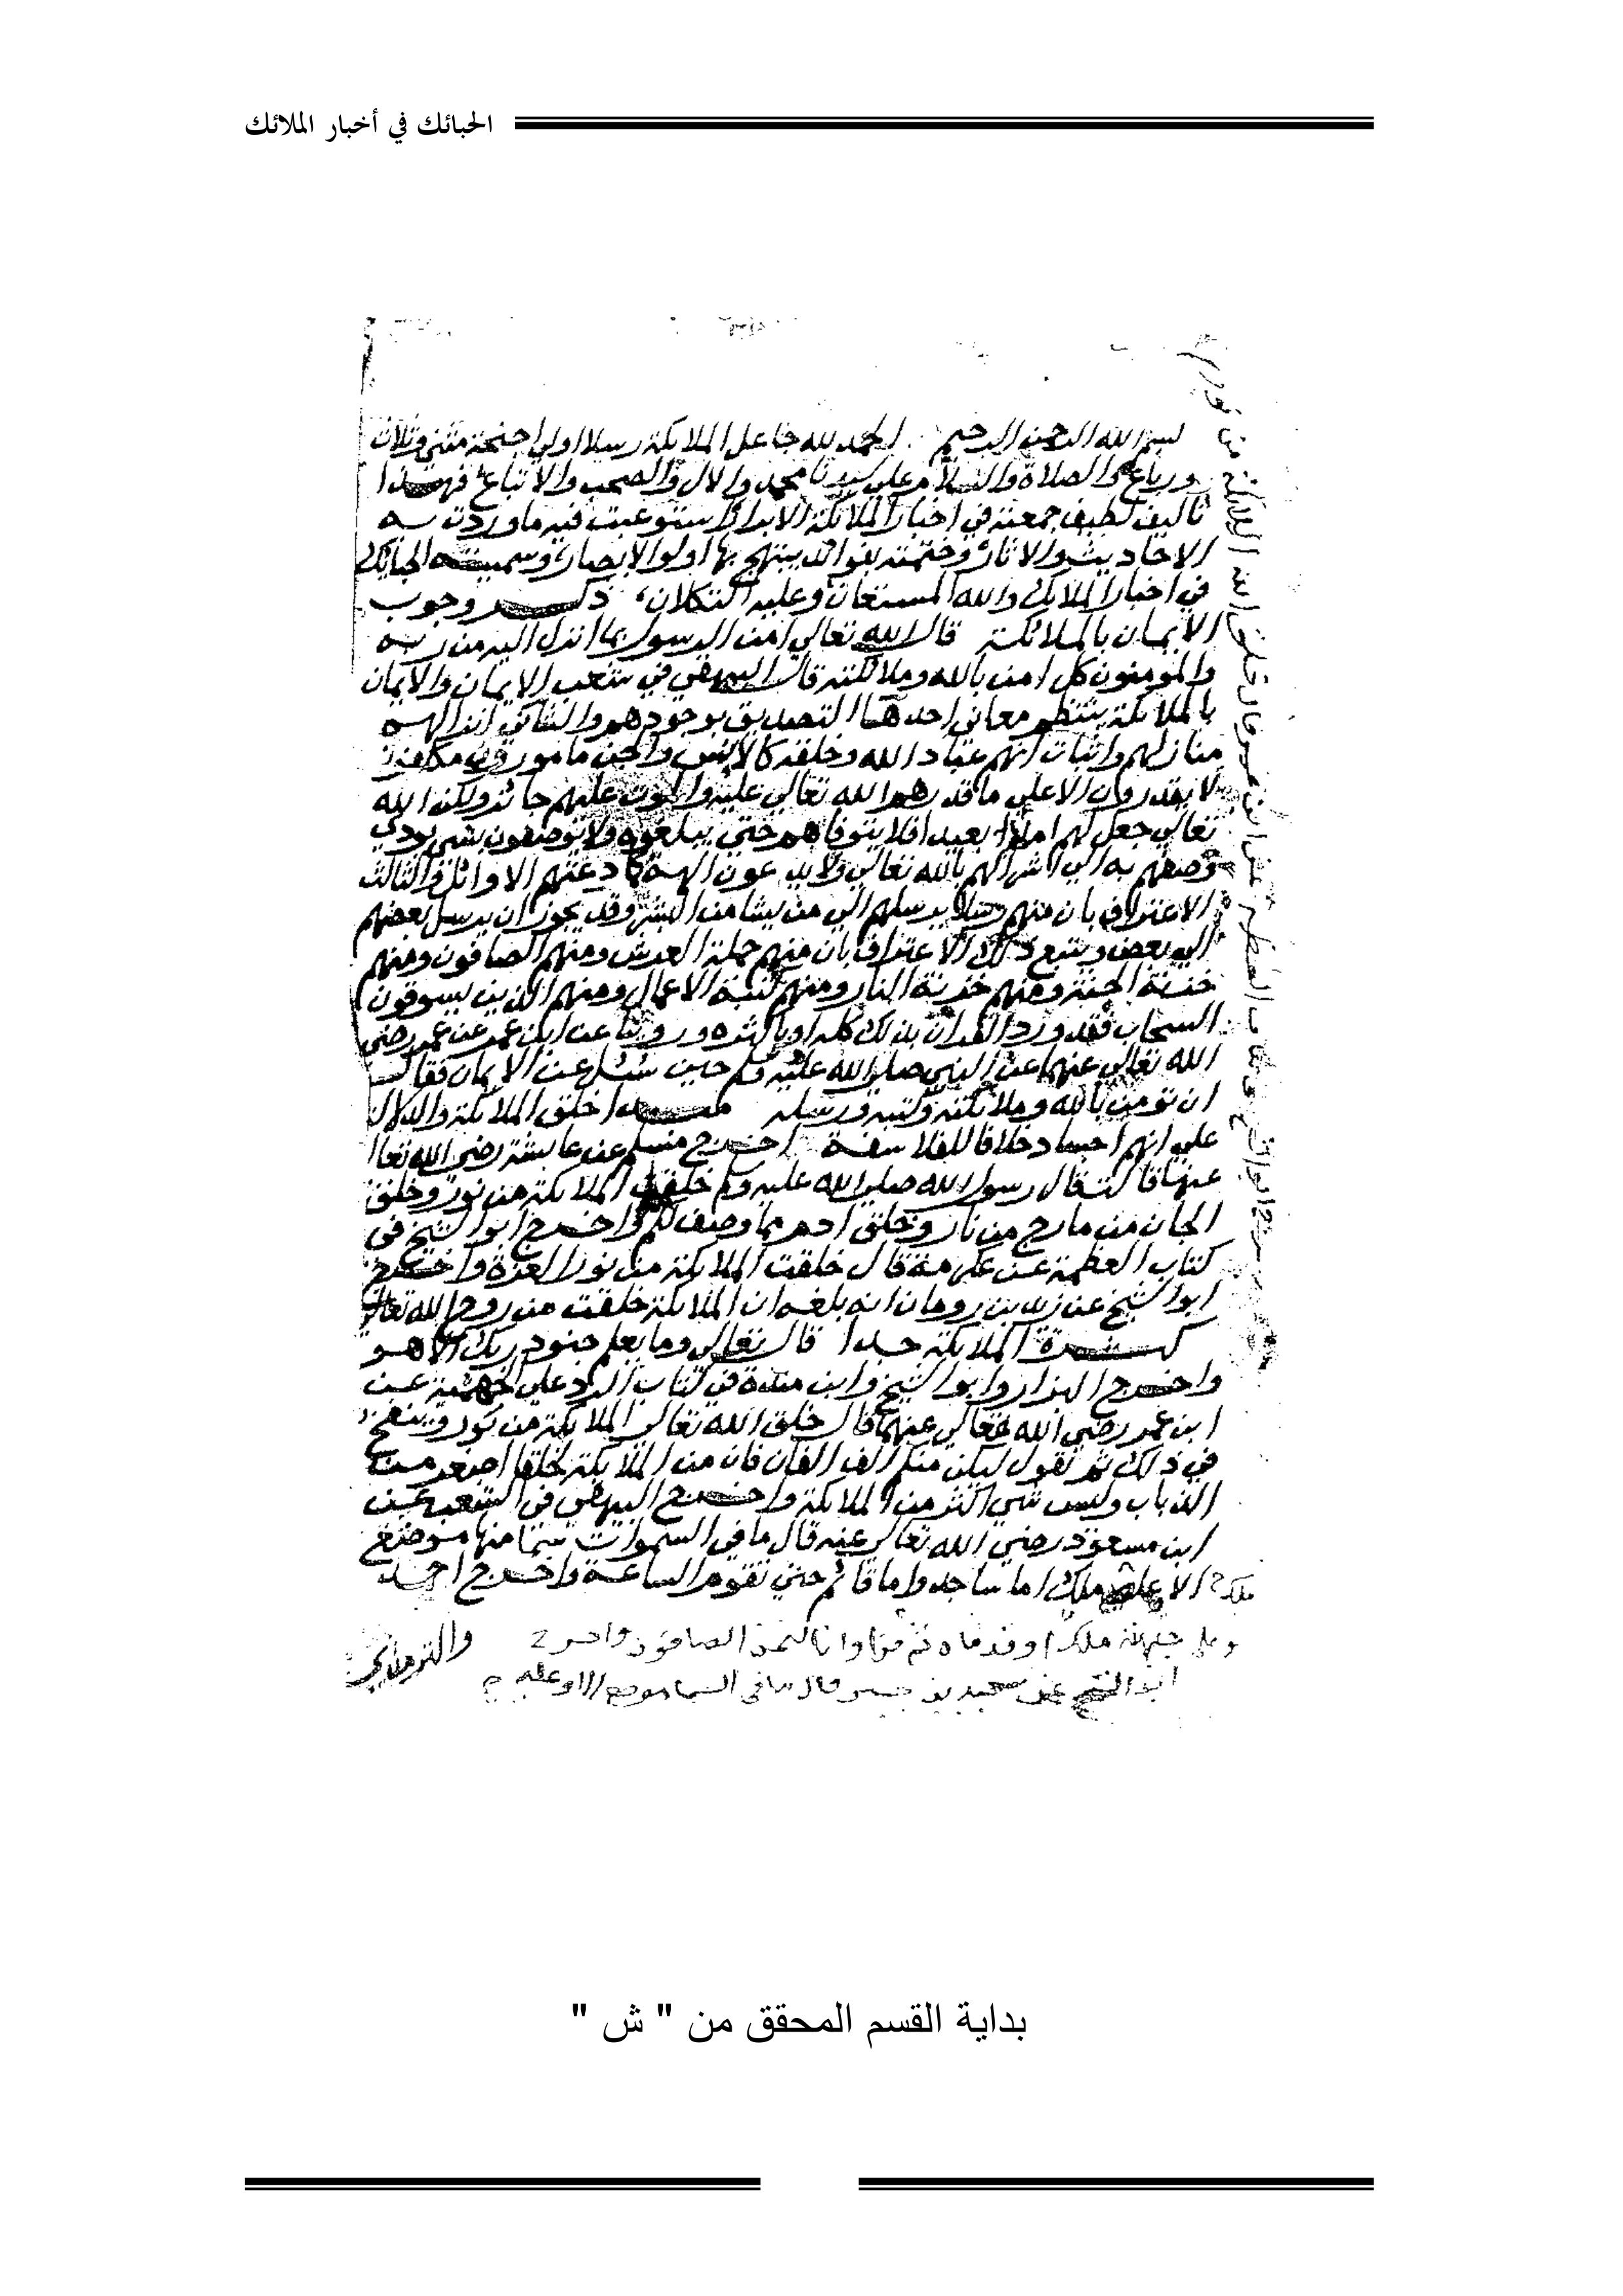 الحبائك في أخبار الملائك
بسم الله الرحمن الرحيم . الحمد لله جاعل الملايكة رسلا اولي اجنحة مثني وثلاث
ورباع والصلاة والسلام علي سيدنا محمد والال والصحب والاتباع فهذا
تاليف لطيف جمعته في اخبار الملايكة الابرار استوعبت فيه ما وردت به
الاحاديث والاثار وختمته بفوائد يبتهج بها اولوا الابصار وسميته الحبايك
في اخبار الملايك والله المستعان وعليه التكلان، ذكر وجوب
الايمان بالملائكة قال الله تعالي امن الرسول بما انزل اليه من ربه
والمومنون كل امن بالله وملائكته قال البيهقي في شعب الايمان والايمان
بالملايكة ينتظم معاني احدها التصديق بوجودهم والثاني انزالهم
منازلهم واثبات انهم عباد الله وخلقه كالانس والجن مامورون مكلفون
لا يقدرون الا علي ما قدرهم الله تعالي عليه والموت عليهم جائز ولكن الله
تعالي جعل لهم امدا بعيدا فلا يتوفاهم حتي يبلغوه ولا يوصفون بشي يودي
وصفهم به الي اشراكهم بالله تعالي ولا يدعون الهة كما دعتهم الاوائل والثالث
الاعتراف بان منهم رسلا يرسلهم الي من يشا من البشر وقد يجوز ان يرسل بعضهم
الي بعض ويتبع ذلك الاعتراف بان منهم حملة العرش ومنهم الصافون ومنهم
خزنة الجنة ومنهم خزنة النار ومنهم كتبة الاعمال ومنهم الذين يسوقون
السحاب فقد ورد القران بذلك كله او باكثره وروينا عن ابن عمر عن عمر رضي
الله تعالي عنهما عن النبي صلي الله عليه وسلم حين سئل عن الايمان فقال
ان تومن بالله وملائكته وكتبه ورسله مبدا خلق الملايكة والدلالة
علي انهم اجساد خلافا للفلاسفة اخرج مسلم عن عايشة رضي الله تعالي
عنها قالت قال رسول الله صلي الله عليه وسلم خلقت الملايكة من نور وخلق
الجان من مارج من نار وخلق ادم مما وصف لكم واخرج ابو الشيخ في
كتاب العظمة عن عكرمة قال خلقت الملايكة من نور العزة واخرج
ابو الشيخ عن يزيد بن رومان انه بلغه ان الملايكة خلقت من روح الله تعالي
كثرة الملايكة جدا قال تعالي وما يعلم جنود ربك الا هو
واخرج البزار وابو الشيخ وابن مندة في كتاب الرد علي الجهمية عن
ابن عمر رضي الله تعالي عنهما قال خلق الله تعالي الملايكة من نور وينفخ
في ذلك ثم نقول ليكن منكم الف الفان فان من الملايكة لخلقا اصغر من
الذباب وليس شي اكثر من الملايكة واخرج البيهقي في الشعب عن
ابن مسعود رضي الله تعالي عنه قال ما في السموات سما منها موضع
الا عليه ملك اما ساجد واما قائم حتي تقوم الساعة واخرج احمد
وعلي جبهة ملك او قدماه ثم قرا وانا لنحن الصافون واخرج
والترمذي
ابو الشيخ عن سعيد بن جبير قال ما في السما موضع الا وعليه
بداية القسم المحقق من " ش "